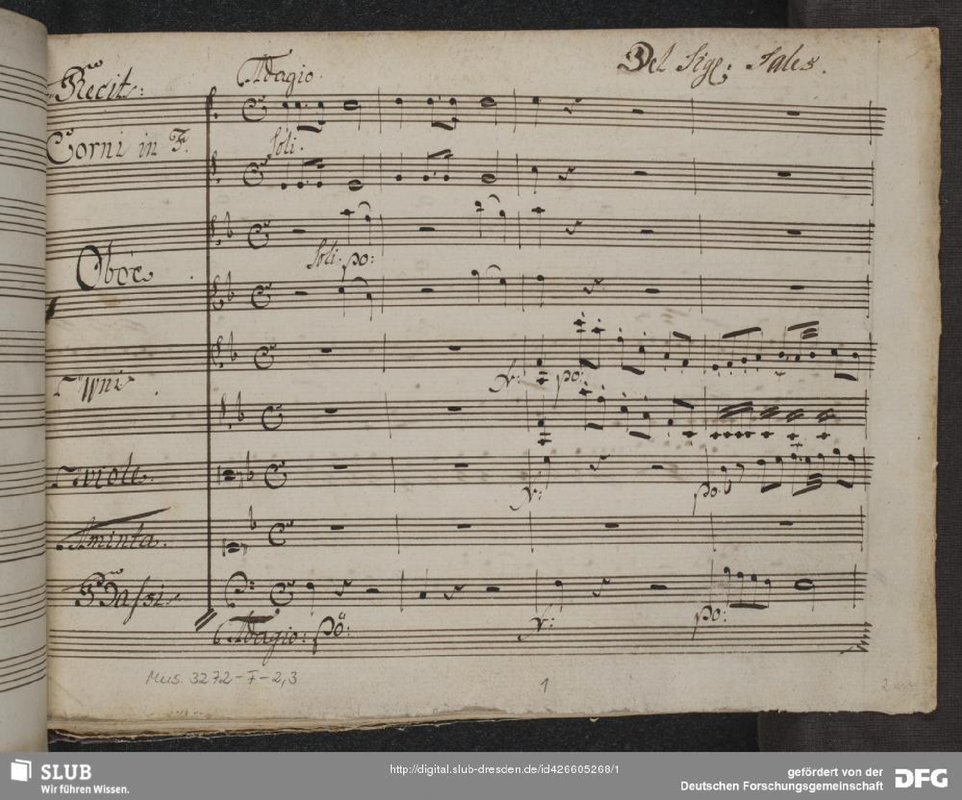 Recit:
Adagio.
Del Sigr: Sales.
Corni in F.
Soli.
Oboe
Soli. po:
VVni
f: po:
Viole.
f: po:
Aminta.
Bassi
Adagio: po: f: po:
Mus. 3272-F-2,3
1
SLUB
Wir führen Wissen.
http://digital.slub-dresden.de/id426605268/1
gefördert von der
Deutschen Forschungsgemeinschaft
DFG